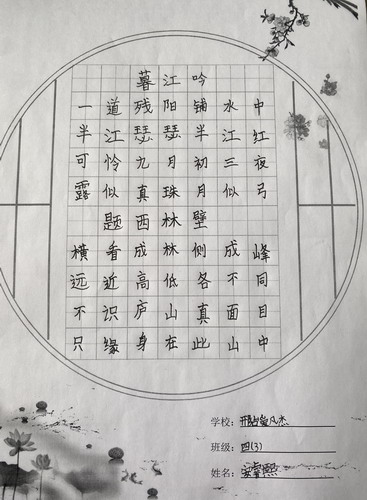 暮江吟
一道残阳铺水中
半江瑟瑟半江红
可怜九月初三夜
露似真珠月似弓
题西林壁
横看成林侧成峰
远近高低各不同
不识庐山真面目
只缘身在此山中
学校:
班级: 四(3)
姓名: